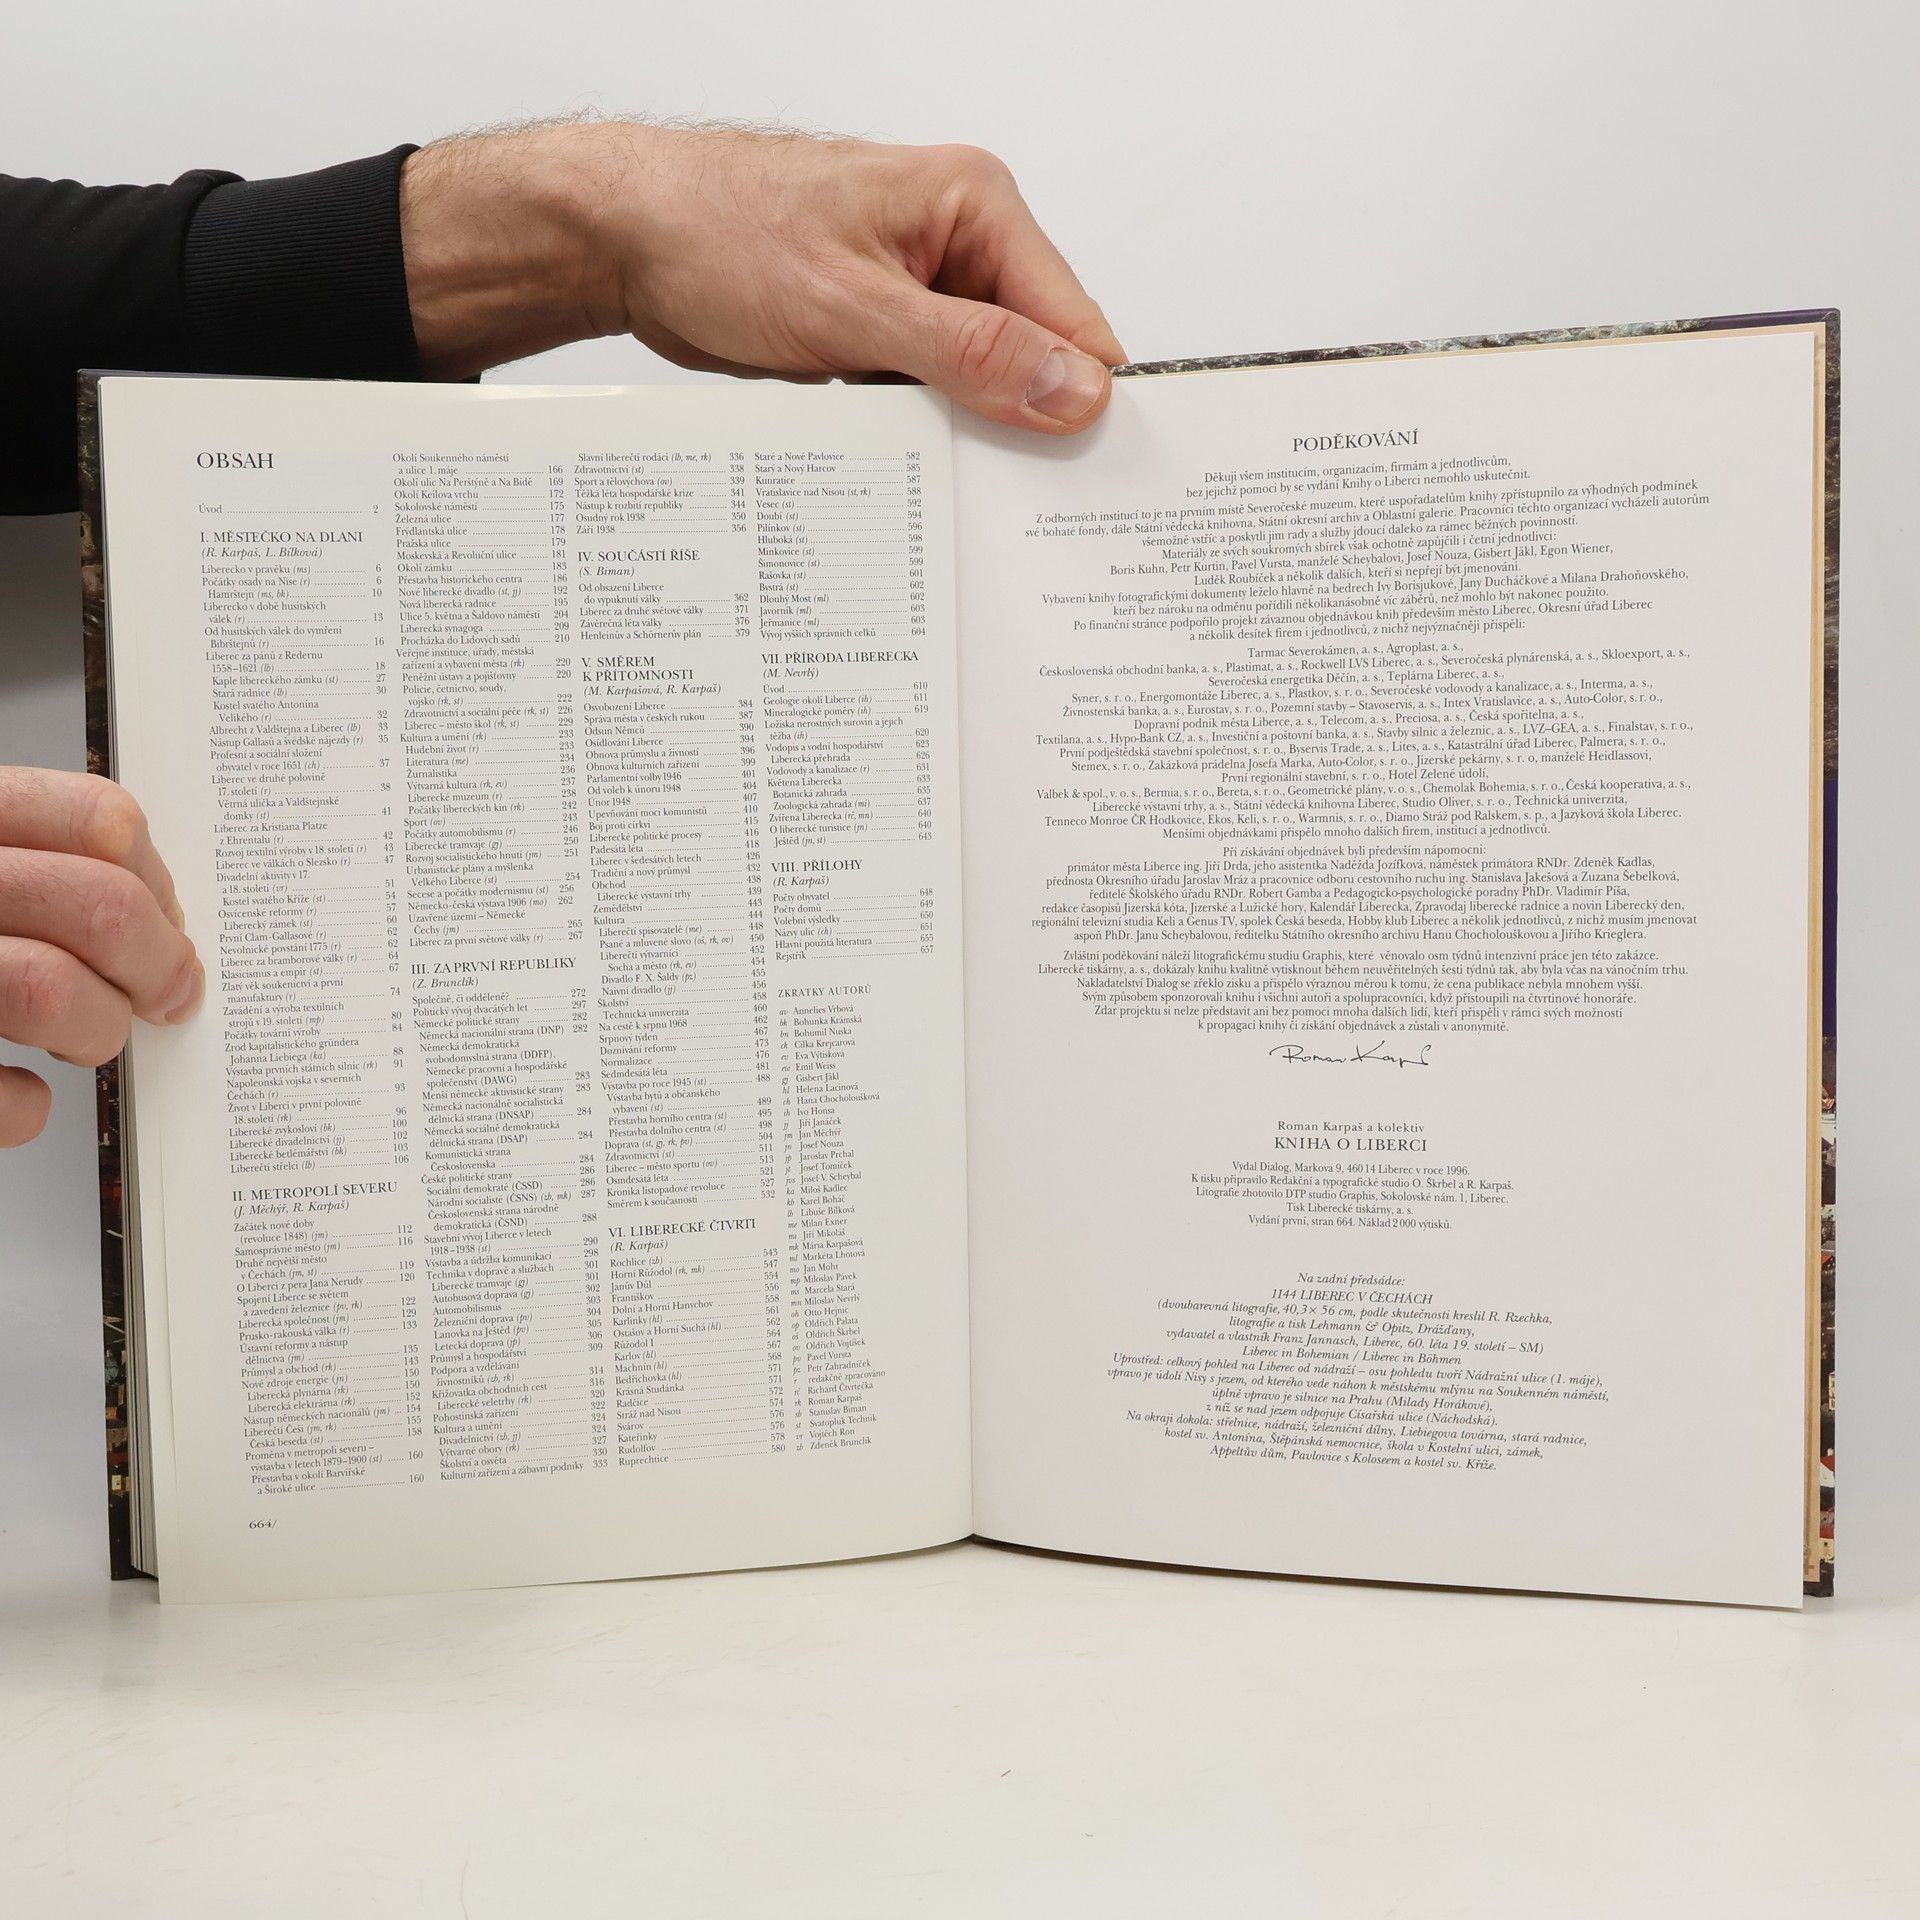 OBSAH
Úvod ... 2
I. MĚSTEČKO NA DLANI
(R. Karpaš, L. Bílková)
Liberecko v pravěku (ms) ... 6
Počátky osady na Nise (r) ... 6
Hamrštejn (ms, bk) ... 10
Liberecko v době husitských
válek (r) ... 13
Od husitských válek do vymření
Bibrštejnů (r) ... 16
Liberec za pánů z Redernu
1558–1621 (lb) ... 18
Kaple libereckého zámku (st) ... 27
Stará radnice (lb) ... 30
Kostel svatého Antonína
Velikého (r) ... 32
Albrecht z Valdštejna a Liberec (lb) 33
Nástup Gallasů a švédské nájezdy (r) 35
Profesní a sociální složení
obyvatel v roce 1651 (ch) ... 37
Liberec ve druhé polovině
17. století (r) ... 38
Větrná ulička a Valdštejnské
domky (st) ... 41
Liberec za Kristiana Platze
z Ehrentalu (r) ... 42
Rozvoj textilní výroby v 18. století (r) 43
Liberec ve válkách o Slezsko (r) ... 47
Divadelní aktivity v 17.
a 18. století (vr) ... 51
Kostel svatého Kříže (st) ... 54
Osvícenské reformy (r) ... 57
Liberecký zámek (st) ... 60
První Clam-Gallasové (r) ... 62
Nevolnické povstání 1775 (r) ... 62
Liberec za bramborové války (r) ... 64
Klasicismus a empír (st) ... 67
Zlatý věk soukenictví a první
manufaktury (r) ... 74
Zavádění a výroba textilních
strojů v 19. století (mp) ... 80
Počátky tovární výroby ... 84
Zrod kapitalistického gründera
Johanna Liebiega (ka) ... 88
Výstavba prvních státních silnic (rk) 91
Napoleonská vojska v severních
Čechách (r) ... 93
Život v Liberci v první polovině
18. století (rk) ... 96
Liberecké zvykosloví (bk) ... 100
Liberecké divadelnictví (jj) ... 102
Liberecké betlémářství (bk) ... 103
Liberečtí střelci (lb) ... 106
II. METROPOLÍ SEVERU
(J. Měchýř, R. Karpaš)
Začátek nové doby
(revoluce 1848) (jm) ... 112
Samosprávné město (jm) ... 116
Druhé největší město
v Čechách (jm, st) ... 119
O Liberci z pera Jana Nerudy ... 120
Spojení Liberce se světem
a zavedení železnice (pv, rk) ... 122
Liberecká společnost (jm) ... 129
Prusko-rakouská válka (r) ... 133
Ústavní reformy a nástup
dělnictva (jm) ... 135
Průmysl a obchod (rk) ... 143
Nové zdroje energie (jn) ... 150
Liberecká plynárna (rk) ... 150
Liberecká elektrárna (rk) ... 152
Nástup německých nacionálů (jm) ... 154
Liberečtí Češi (jm, rk) ... 155
Česká beseda (st) ... 158
Proměna v metropoli severu –
výstavba v letech 1879–1900 (st) ... 160
Přestavba v okolí Barvířské
a Široké ulice ... 160
664/
Okolí Soukenného náměstí
a ulice 1. máje ... 166
Okolí ulic Na Perštýně a Na Bídě 169
Okolí Keilova vrchu ... 172
Sokolovské náměstí ... 175
Železná ulice ... 177
Frýdlantská ulice ... 178
Pražská ulice ... 179
Moskevská a Revoluční ulice ... 181
Okolí zámku ... 183
Přestavba historického centra ... 186
Nové liberecké divadlo (st, jj) ... 192
Nová liberecká radnice ... 195
Ulice 5. května a Šaldovo náměstí 204
Liberecká synagoga ... 209
Procházka do Lidových sadů ... 210
Veřejné instituce, úřady, městská
zařízení a vybavení města (rk) ... 220
Peněžní ústavy a pojišťovny ... 220
Policie, četnictvo, soudy,
vojsko (rk, st) ... 222
Zdravotnictví a sociální péče (rk, st) 226
Liberec – město škol (rk, st) ... 229
Kultura a umění (rk) ... 233
Hudební život (r) ... 233
Literatura (me) ... 234
Žurnalistika ... 236
Výtvarná kultura (rk, ev) ... 237
Liberecké muzeum (r) ... 238
Počátky libereckých kin (rk) ... 242
Sport (ov) ... 243
Počátky automobilismu (r) ... 246
Liberecké tramvaje (gj) ... 250
Rozvoj socialistického hnutí (jm) ... 251
Urbanistické plány a myšlenka
Velkého Liberce (st) ... 254
Secese a počátky modernismu (st) 256
Německo-česká výstava 1906 (mo) 262
Uzavřené území – Německé
Čechy (jm) ... 265
Liberec za první světové války (r) ... 267
III. ZA PRVNÍ REPUBLIKY
(Z. Brunclík)
Společně, či odděleně? ... 272
Politický vývoj dvacátých let ... 297
Německé politické strany ... 282
Německá nacionální strana (DNP) 282
Německá demokratická
svobodomyslná strana (DDFP),
Německé pracovní a hospodářské
společenství (DAWG) ... 283
Menší německé aktivistické strany 283
Německá nacionálně socialistická
dělnická strana (DNSAP) ... 284
Německá sociálně demokratická
dělnická strana (DSAP) ... 284
Komunistická strana
Československa ... 284
České politické strany ... 286
Sociální demokraté (ČSSD) ... 286
Národní socialisté (ČSNS) (zb, mk) 287
Československá strana národně
demokratická (ČSND) ... 288
Stavební vývoj Liberce v letech
1918–1938 (st) ... 290
Výstavba a údržba komunikací ... 298
Technika v dopravě a službách ... 301
Liberecké tramvaje (gj) ... 301
Autobusová doprava (gj) ... 302
Automobilismus ... 303
Železniční doprava (pv) ... 304
Lanovka na Ještěd (pv) ... 305
Letecká doprava (jp) ... 306
Průmysl a hospodářství ... 309
Podpora a vzdělávání
živnostníků (zb, rk) ... 314
Křižovatka obchodních cest ... 316
Liberecké veletrhy (rk) ... 320
Pohostinská zařízení ... 322
Kultura a umění ... 324
Divadelnictví (zb, jj) ... 324
Výtvarné obory (rk) ... 327
Školství a osvěta ... 330
Kulturní zařízení a zábavní podniky 333
Slavní liberečtí rodáci (lb, me, rk) 336
Zdravotnictví (st) ... 338
Sport a tělovýchova (ov) ... 339
Těžká léta hospodářské krize ... 341
Nástup k rozbití republiky ... 344
Osudný rok 1938 ... 350
Září 1938 ... 356
IV. SOUČÁSTÍ ŘÍŠE
(S. Biman)
Od obsazení Liberce
do vypuknutí války ... 362
Liberec za druhé světové války ... 371
Závěrečná léta války ... 376
Henleinův a Schörnerův plán ... 379
V. SMĚREM
K PŘÍTOMNOSTI
(M. Karpašová, R. Karpaš)
Osvobození Liberce ... 384
Správa města v českých rukou ... 387
Odsun Němců ... 390
Osídlování Liberce ... 394
Obnova průmyslu a živností ... 396
Obnova kulturních zařízení ... 399
Parlamentní volby 1946 ... 401
Od voleb k únoru 1948 ... 404
Únor 1948 ... 407
Upevňování moci komunistů ... 410
Boj proti církvi ... 415
Liberecké politické procesy ... 416
Padesátá léta ... 418
Liberec v šedesátých letech ... 426
Tradiční a nový průmysl ... 432
Obchod ... 438
Liberecké výstavní trhy ... 439
Zemědělství ... 443
Kultura ... 444
Liberečtí spisovatelé (me) ... 448
Psané a mluvené slovo (oš, rk, ov) 450
Liberečtí výtvarníci ... 452
Socha a město (rk, ev) ... 454
Divadlo F. X. Šaldy (pz) ... 455
Naivní divadlo (jj) ... 456
Školství ... 458
Technická univerzita ... 460
Na cestě k srpnu 1968 ... 462
Srpnový týden ... 467
Doznívání reformy ... 473
Normalizace ... 476
Sedmdesátá léta ... 481
Výstavba po roce 1945 (st) ... 488
Výstavba bytů a občanského
vybavení (st) ... 489
Přestavba horního centra (st) ... 495
Přestavba dolního centra (st) ... 498
Doprava (st, gj, rk, pv) ... 504
Zdravotnictví (st) ... 511
Liberec – město sportu (ov) ... 513
Osmdesátá léta ... 521
Kronika listopadové revoluce ... 527
Směrem k současnosti ... 532
VI. LIBERECKÉ ČTVRTI
(R. Karpaš)
Rochlice (zb) ... 543
Horní Růžodol (rk, mk) ... 547
Janův Důl ... 554
Františkov ... 556
Dolní a Horní Hanychov ... 558
Karlinky (hl) ... 561
Ostašov a Horní Suchá (hl) ... 562
Růžodol I ... 564
Karlov (hl) ... 567
Machnín (hl) ... 568
Bedřichovka (hl) ... 571
Krásná Studánka ... 571
Radčice ... 572
Stráž nad Nisou ... 574
Svárov ... 576
Kateřinky ... 576
Rudolfov ... 578
Ruprechtice ... 580
Staré a Nové Pavlovice ... 582
Starý a Nový Harcov ... 585
Kunratice ... 587
Vratislavice nad Nisou (st, rk) ... 588
Vesec (st) ... 592
Doubí (st) ... 594
Pilínkov (st) ... 596
Hluboká (st) ... 598
Minkovice (st) ... 599
Šimonovice (st) ... 599
Rašovka (st) ... 601
Bystrá (st) ... 602
Dlouhý Most (ml) ... 602
Javorník (ml) ... 603
Jeřmanice (ml) ... 603
Vývoj vyšších správních celků ... 604
VII. PŘÍRODA LIBERECKA
(M. Nevrlý)
Úvod ... 610
Geologie okolí Liberce (ih) ... 611
Mineralogické poměry (ih) ... 619
Ložiska nerostných surovin a jejich
těžba (ih) ... 620
Vodopis a vodní hospodářství ... 623
Liberecká přehrada ... 626
Vodovody a kanalizace (r) ... 631
Květena Liberecka ... 633
Botanická zahrada ... 635
Zoologická zahrada (mi) ... 637
Zvířena Liberecka (rč, mn) ... 640
O liberecké turistice (jn) ... 640
Ještěd (jn, st) ... 643
VIII. PŘÍLOHY
(R. Karpaš)
Počty obyvatel ... 648
Počty domů ... 649
Volební výsledky ... 650
Názvy ulic (ch) ... 651
Hlavní použitá literatura ... 655
Rejstřík ... 657
ZKRATKY AUTORŮ
av Annelies Vrbová
bk Bohunka Krámská
bn Bohumil Nuska
ck Cilka Krejcarová
ev Eva Výtisková
ew Emil Weiss
gj Gisbert Jäkl
hl Helena Lacinová
ch Hana Chocholoušková
ih Ivo Honsa
jj Jiří Janáček
jm Jan Měchýř
jn Josef Nouza
jp Jaroslav Prchal
jt Josef Tomíček
jvs Josef V. Scheybal
ka Miloš Kadlec
kb Karel Boháč
lb Libuše Bílková
me Milan Exner
mi Jiří Mikoláš
mk Mária Karpašová
ml Markéta Lhotová
mo Jan Mohr
mp Miloslav Pávek
ms Marcela Stará
mn Miloslav Nevrlý
oh Otto Hejnic
op Oldřich Palata
oš Oldřich Škrbel
ov Oldřich Vojtíšek
pv Pavel Vursta
pz Petr Zahradníček
r redakčně zpracováno
rč Richard Čtvrtečka
rk Roman Karpaš
sb Stanislav Biman
st Svatopluk Technik
vr Vojtěch Ron
zb Zdeněk Brunclík
PODĚKOVÁNÍ
Děkuji všem institucím, organizacím, firmám a jednotlivcům,
bez jejichž pomoci by se vydání Knihy o Liberci nemohlo uskutečnit.
Z odborných institucí to je na prvním místě Severočeské muzeum, které uspořadatelům knihy zpřístupnilo za výhodných podmínek
své bohaté fondy, dále Státní vědecká knihovna, Státní okresní archiv a Oblastní galerie. Pracovníci těchto organizací vycházeli autorům
všemožně vstříc a poskytli jim rady a služby jdoucí daleko za rámec běžných povinností.
Materiály ze svých soukromých sbírek však ochotně zapůjčili i četní jednotlivci:
Boris Kuhn, Petr Kurtin, Pavel Vursta, manželé Scheybalovi, Josef Nouza, Gisbert Jäkl, Egon Wiener,
Luděk Roubíček a několik dalších, kteří si nepřejí být jmenováni.
Vybavení knihy fotografickými dokumenty leželo hlavně na bedrech Ivy Borisjukové, Jany Ducháčkové a Milana Drahoňovského,
kteří bez nároku na odměnu pořídili několikanásobně víc záběrů, než mohlo být nakonec použito.
Po finanční stránce podpořilo projekt závaznou objednávkou knih především město Liberec, Okresní úřad Liberec
a několik desítek firem i jednotlivců, z nichž nejvýznačněji přispěli:
Tarmac Severokámen, a. s., Agroplast, a. s.,
Československá obchodní banka, a. s., Plastimat, a. s., Rockwell LVS Liberec, a. s., Severočeská plynárenská, a. s., Skloexport, a. s.,
Severočeská energetika Děčín, a. s., Teplárna Liberec, a. s.,
Syner, s. r. o., Energomontáže Liberec, a. s., Plastkov, s. r. o., Severočeské vodovody a kanalizace, a. s., Interma, a. s.,
Živnostenská banka, a. s., Eurostav, s. r. o., Pozemní stavby – Stavoservis, a. s., Intex Vratislavice, a. s., Auto-Color, s. r. o.,
Dopravní podnik města Liberce, a. s., Telecom, a. s., Preciosa, a. s., Česká spořitelna, a. s.,
Textilana, a. s., Hypo-Bank CZ, a. s., Investiční a poštovní banka, a. s., Stavby silnic a železnic, a. s., LVZ–GEA, a. s., Finalstav, s. r. o.,
První podještědská stavební společnost, s. r. o., Byservis Trade, a. s., Lites, a. s., Katastrální úřad Liberec, Palmera, s. r. o.,
Stemex, s. r. o., Zakázková prádelna Josefa Marka, Auto-Color, s. r. o., Jizerské pekárny, s. r. o, manželé Heidlassovi,
První regionální stavební, s. r. o., Hotel Zelené údolí,
Valbek & spol., v. o. s., Bermia, s. r. o., Bereta, s. r. o., Geometrické plány, v. o. s., Chemolak Bohemia, s. r. o., Česká kooperativa, a. s.,
Liberecké výstavní trhy, a. s., Státní vědecká knihovna Liberec, Studio Oliver, s. r. o., Technická univerzita,
Tenneco Monroe ČR Hodkovice, Ekos, Keli, s. r. o., Warmnis, s. r. o., Diamo Stráž pod Ralskem, s. p., a Jazyková škola Liberec.
Menšími objednávkami přispělo mnoho dalších firem, institucí a jednotlivců.
Při získávání objednávek byli především nápomocni:
primátor města Liberce ing. Jiří Drda, jeho asistentka Naděžda Jozífková, náměstek primátora RNDr. Zdeněk Kadlas,
přednosta Okresního úřadu Jaroslav Mráz a pracovnice odboru cestovního ruchu ing. Stanislava Jakešová a Zuzana Šebelková,
ředitelé Školského úřadu RNDr. Robert Gamba a Pedagogicko-psychologické poradny PhDr. Vladimír Píša,
redakce časopisů Jizerská kóta, Jizerské a Lužické hory, Kalendář Liberecka, Zpravodaj liberecké radnice a novin Liberecký den,
regionální televizní studia Keli a Genus TV, spolek Česká beseda, Hobby klub Liberec a několik jednotlivců, z nichž musím jmenovat
aspoň PhDr. Janu Scheybalovou, ředitelku Státního okresního archivu Hanu Chocholouškovou a Jiřího Krieglera.
Zvláštní poděkování náleží litografickému studiu Graphis, které věnovalo osm týdnů intenzivní práce jen této zakázce.
Liberecké tiskárny, a. s., dokázaly knihu kvalitně vytisknout během neuvěřitelných šesti týdnů tak, aby byla včas na vánočním trhu.
Nakladatelství Dialog se zřeklo zisku a přispělo výraznou měrou k tomu, že cena publikace nebyla mnohem vyšší.
Svým způsobem sponzorovali knihu i všichni autoři a spolupracovníci, když přistoupili na čtvrtinové honoráře.
Zdar projektu si nelze představit ani bez pomoci mnoha dalších lidí, kteří přispěli v rámci svých možností
k propagaci knihy či získání objednávek a zůstali v anonymitě.
Roman Karpaš
Roman Karpaš a kolektiv
KNIHA O LIBERCI
Vydal Dialog, Markova 9, 460 14 Liberec v roce 1996.
K tisku připravilo Redakční a typografické studio O. Škrbel a R. Karpaš.
Litografie zhotovilo DTP studio Graphis, Sokolovské nám. 1, Liberec.
Tisk Liberecké tiskárny, a. s.
Vydání první, stran 664. Náklad 2 000 výtisků.
Na zadní předsádce:
1144 LIBEREC V ČECHÁCH
(dvoubarevná litografie, 40,3 × 56 cm, podle skutečnosti kreslil R. Rzechka,
litografie a tisk Lehmann & Opitz, Drážďany,
vydavatel a vlastník Franz Jannasch, Liberec, 60. léta 19. století – SM)
Liberec in Bohemian / Liberec in Böhmen
Uprostřed: celkový pohled na Liberec od nádraží – osu pohledu tvoří Nádražní ulice (1. máje),
vpravo je údolí Nisy s jezem, od kterého vede náhon k městskému mlýnu na Soukenném náměstí,
úplně vpravo je silnice na Prahu (Milady Horákové),
z níž se nad jezem odpojuje Císařská ulice (Náchodská).
Na okraji dokola: střelnice, nádraží, železniční dílny, Liebiegova továrna, stará radnice,
kostel sv. Antonína, Štěpánská nemocnice, škola v Kostelní ulici, zámek,
Appeltův dům, Pavlovice s Koloseem a kostel sv. Kříže.